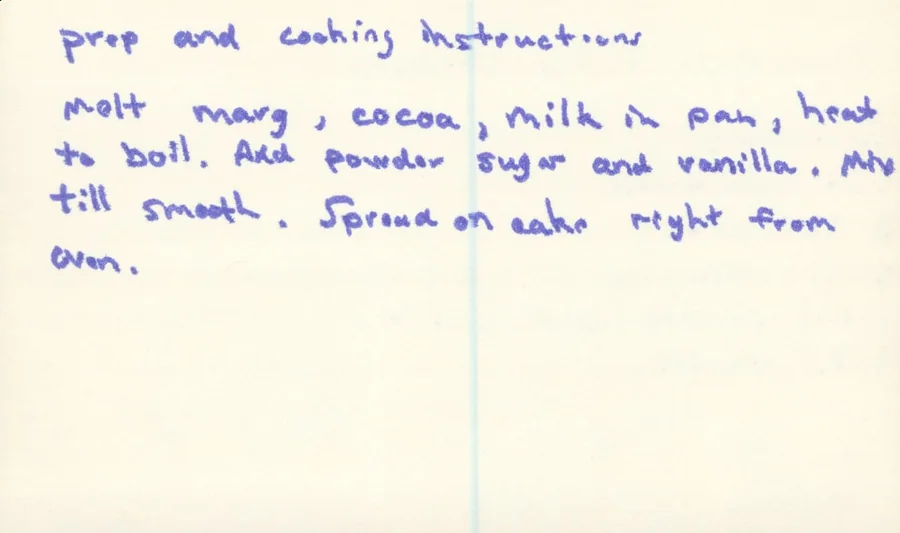 prep and cooking instructions
Melt marg, cocoa, milk in pan, heat
to boil. Add powder sugar and vanilla. Mix
till smooth. Spread on cake right from
oven.